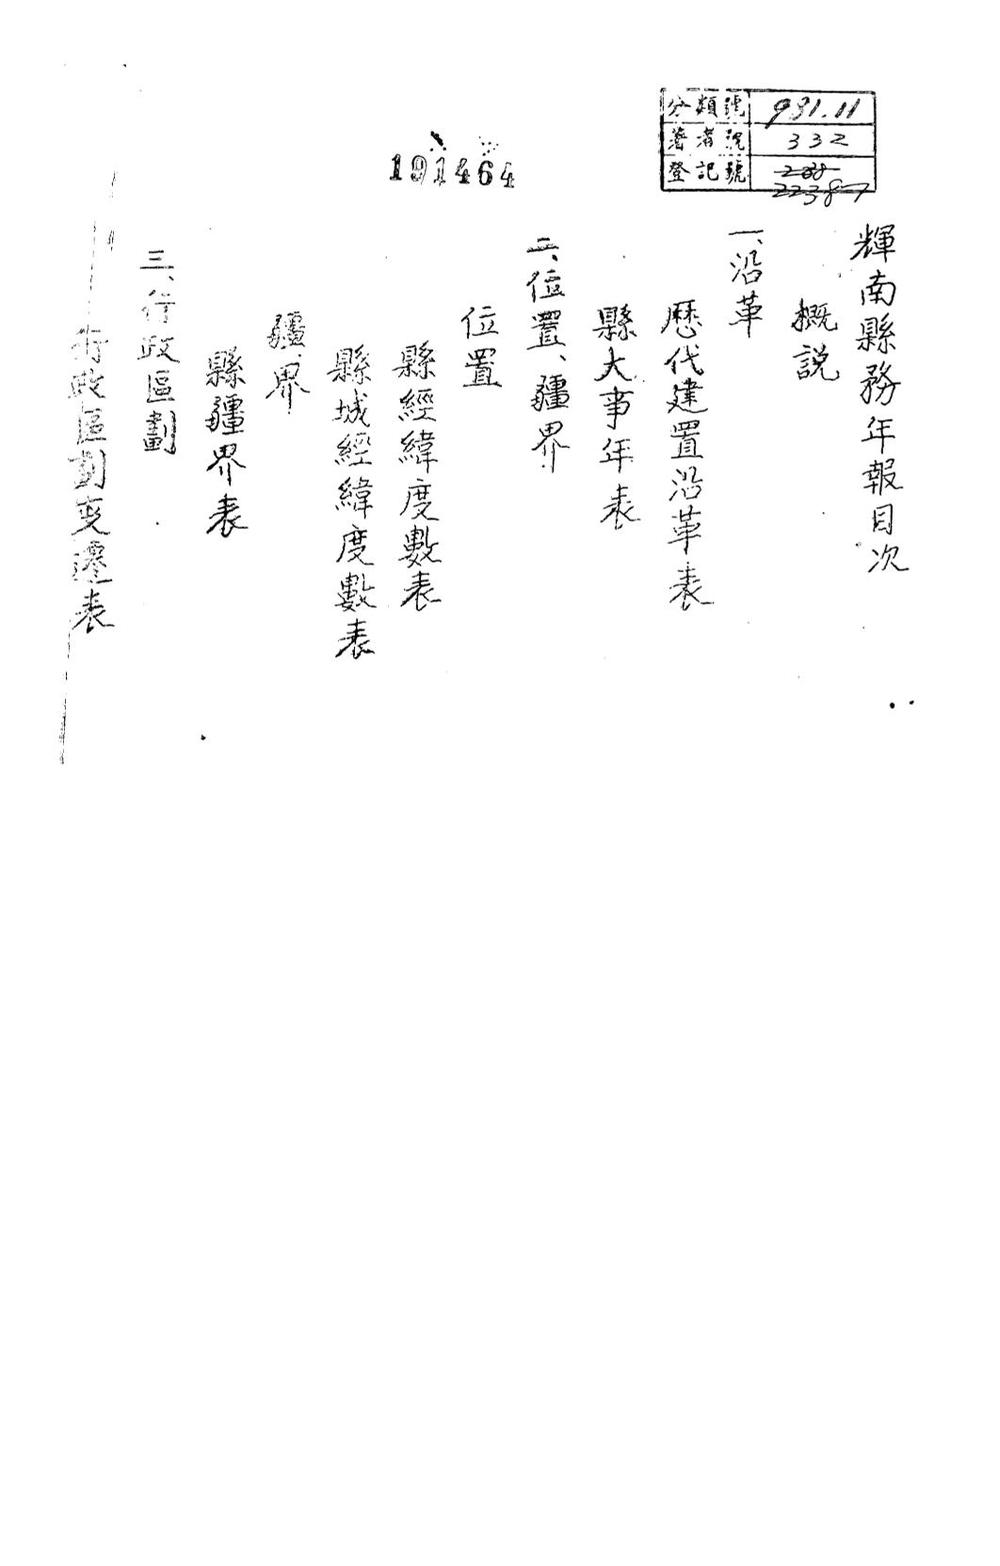 分類號 931.11
著者號 332
登記號
22387
191464
輝南縣務年報目次
概説
一、沿革
歷代建置沿革表
縣大事年表
二、位置、疆界
位置
縣經緯度數表
縣城經緯度數表
疆界
縣疆界表
三、行政區劃
行政區劃变遷表